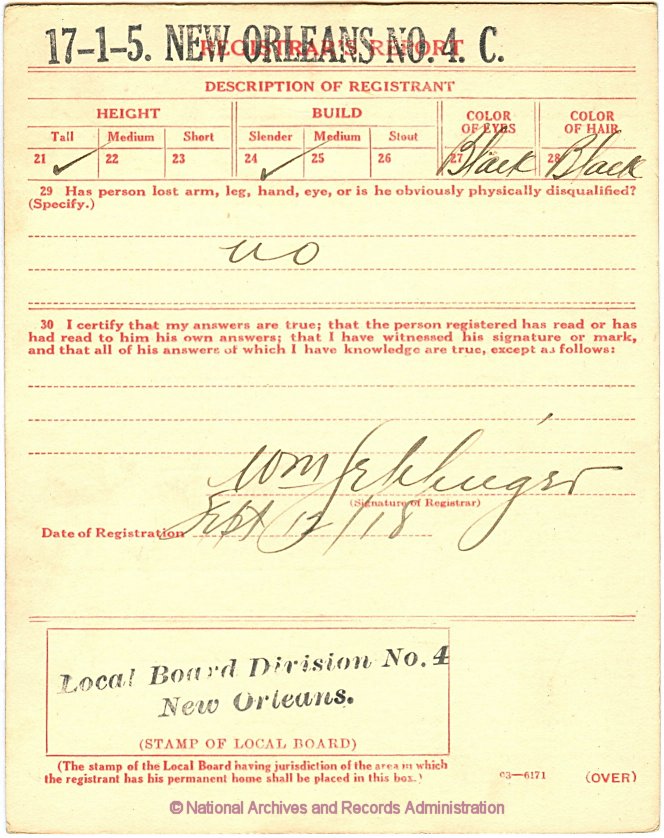 17-1-5. NEW ORLEANS NO. 4. C.
REGISTRAR'S REPORT
DESCRIPTION OF REGISTRANT
HEIGHT BUILD COLOR OF EYES COLOR OF HAIR
Tall Medium Short Slender Medium Stout
21 ✓ 22 23 24 ✓ 25 26 27 Black 28 Black
29 Has person lost arm, leg, hand, eye, or is he obviously physically disqualified?
(Specify.)
no
30 I certify that my answers are true; that the person registered has read or has
had read to him his own answers; that I have witnessed his signature or mark,
and that all of his answers of which I have knowledge are true, except as follows:
Wm
(Signature of Registrar)
Date of Registration Sept 12/18
Local Board Division No. 4
New Orleans.
(STAMP OF LOCAL BOARD)
(The stamp of the Local Board having jurisdiction of the area in which
the registrant has his permanent home shall be placed in this box.)
03—6171 (OVER)
© National Archives and Records Administration